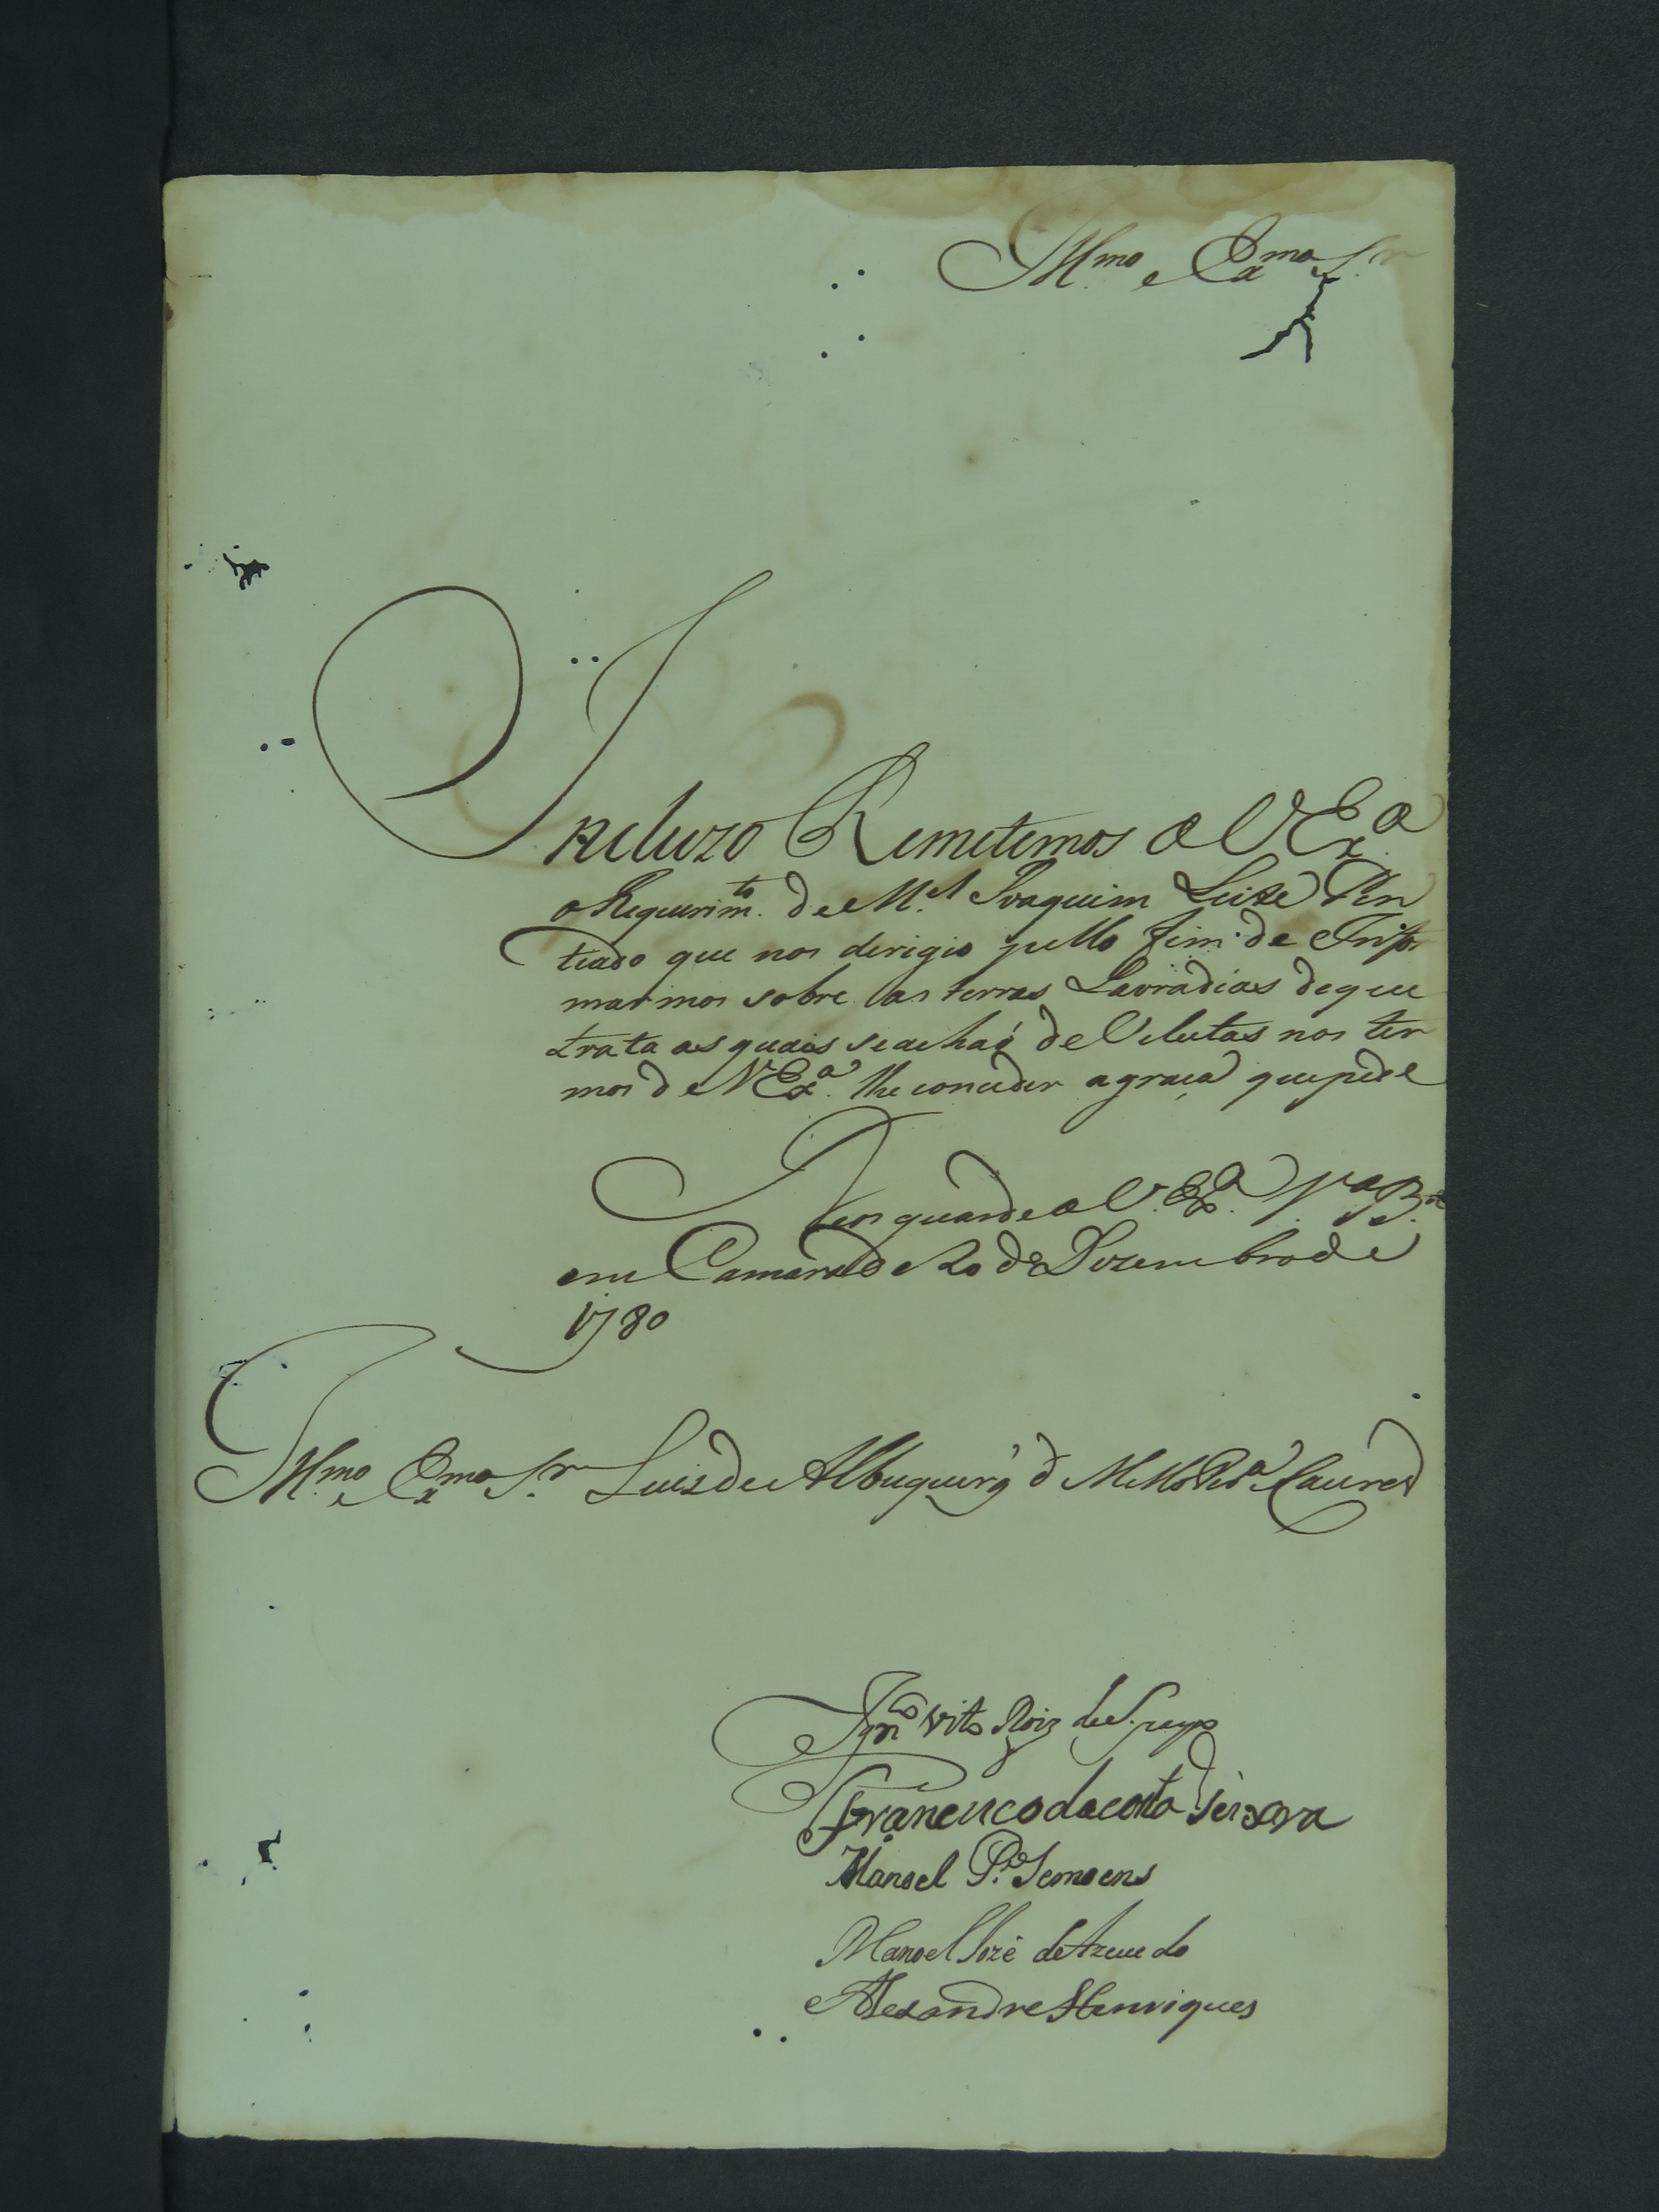 Illmo e Exmo Sr
Incluzo Remetemos a V Exa
o Requerimto. de Mel Joaquim Leite Pen
teado que nos derigio pello fim de Infor
marmos sobre as terras Lavradias de que
trata as quais se achaó deVolutas nos ter
mos de V Exa. lhe conceder a graça que pede
Deos guarde a V. Exa. Va Ba
em Camara de 20 de Dezembro de
1780
Illmo e Exmo Sr Luis de Albuquerq' d' Mello Pra Caures
Ignco Vito Roiz de
Francisco da costa Teixera
Manoel P. Semoens
Manoel Jozé de Azeuedo
Alexandre Henriques